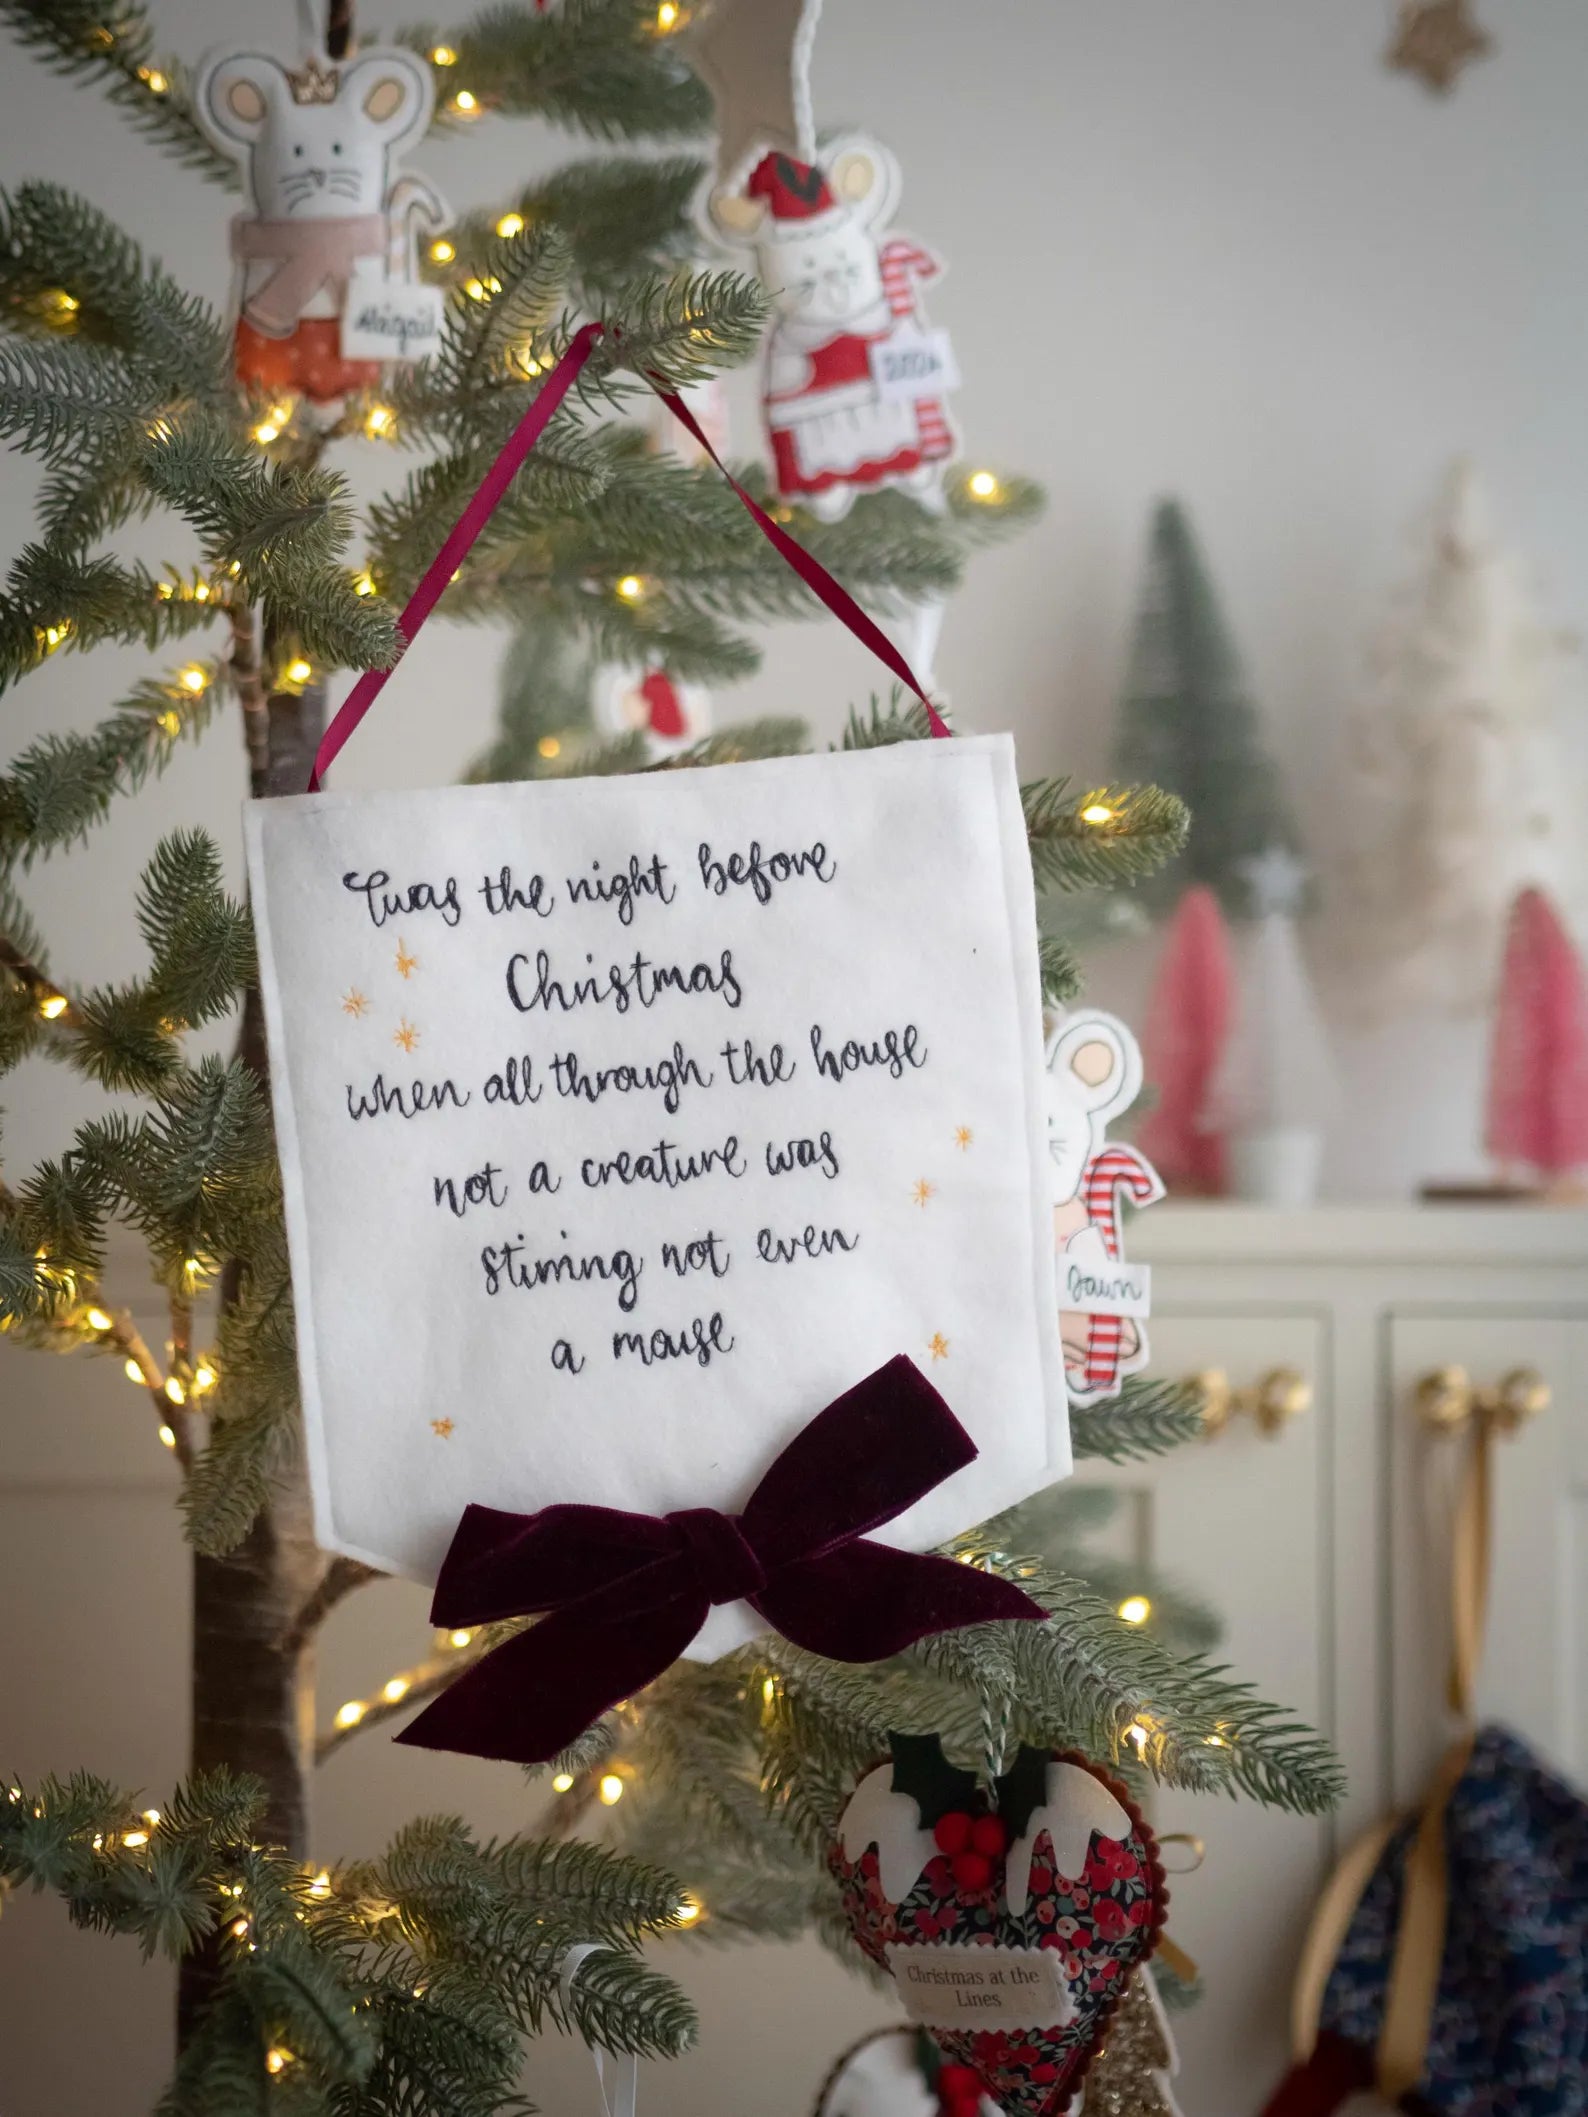 Abigail
2024
'Twas the night before
Christmas
when all through the house
not a creature was
stirring not even
a mouse
Dawn
Christmas at the
Lines